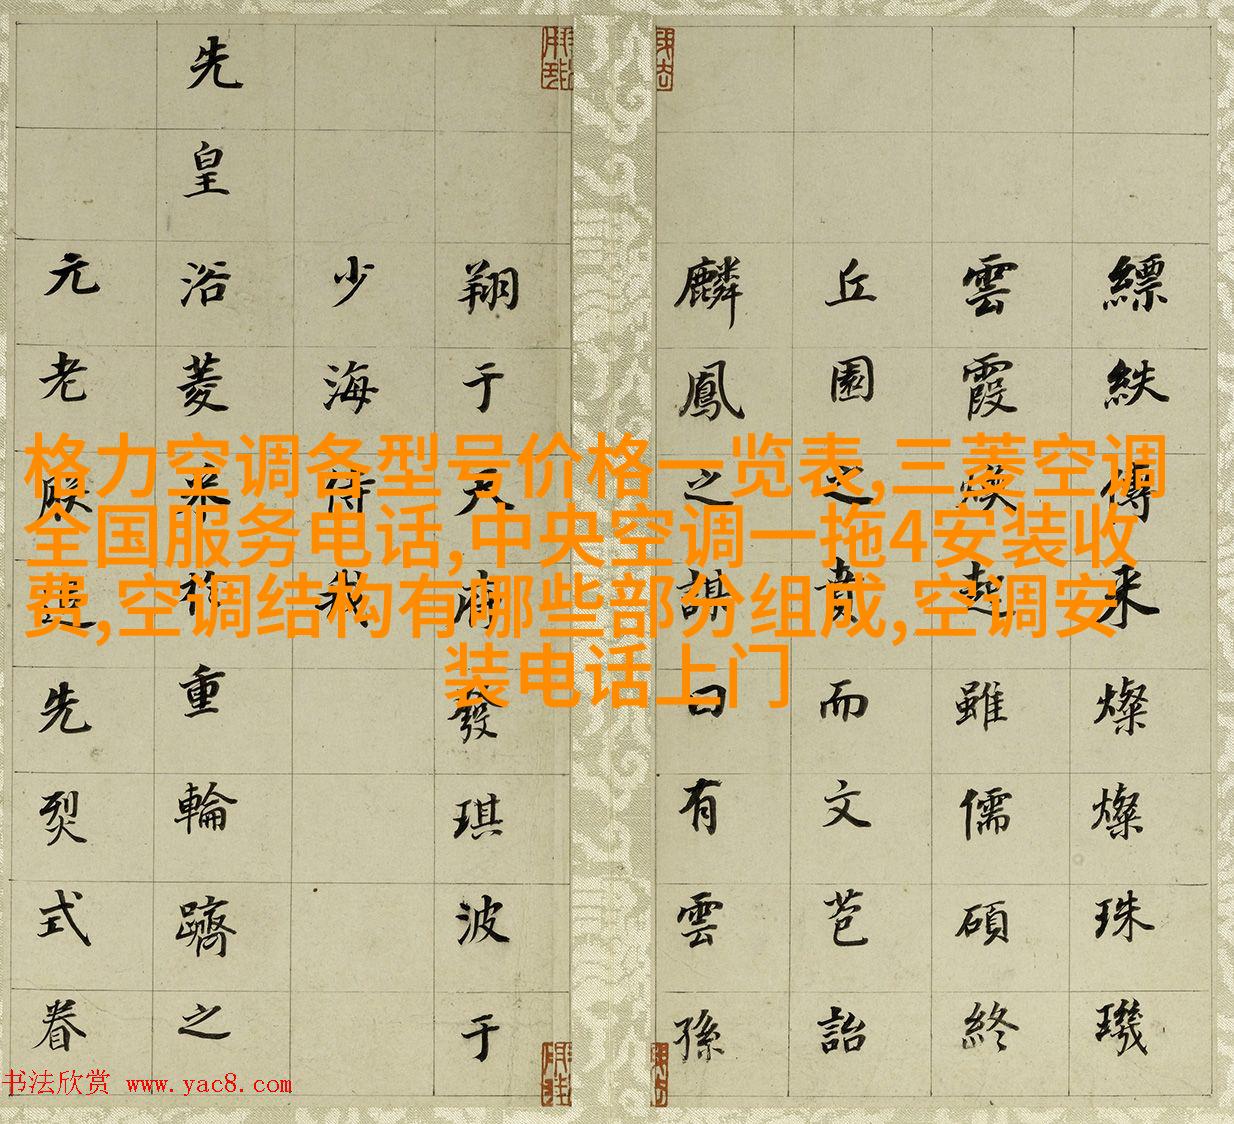 縹紩傳来燦燦珠璣
雲霞煥起雖儒碩終
丘園之賁而文芑詒
麟鳳之曰有雲孫
翔于天府發琪波于
少海侍我
先皇浴菱重輪躋之
元老朕追先烈式眷
格力空调各型号价格一览表,三菱空调
全国服务电话,中央空调一拖4安装收
费,空调结构有哪些部分组成,空调安
装电话上门
书法欣赏 www.yac8.com